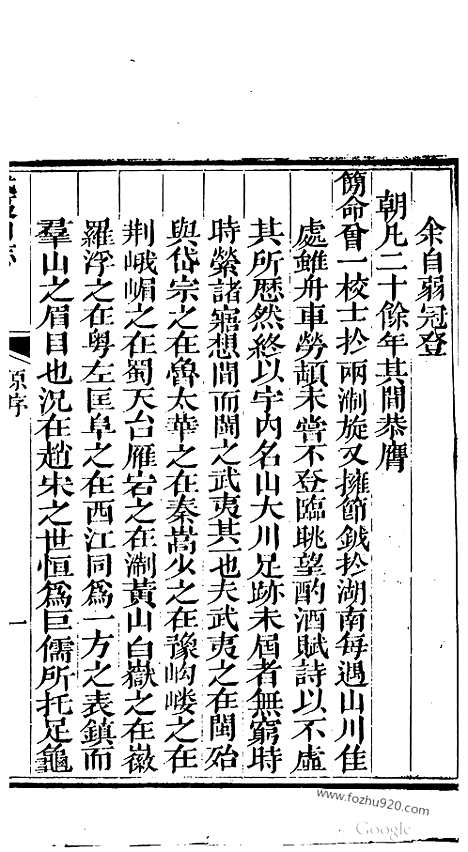 余自弱冠登
朝凡二十餘年其間恭膺
簡命曾一校士扵兩浙旋又擁節鉞扵湖南每遇山川佳
處雖舟車勞頓未嘗不登臨眺望酌酒賦詩以不虛
其所歷然終以宇内名山大川足跡未屆者無窮時
時縈諸寤想間而閩之武夷其一也夫武夷之在閩殆
與岱宗之在魯太華之在秦嵩少之在豫岣嶁之在
荆峨嵋之在蜀天台雁宕之在浙黃山白嶽之在徽
羅浮之在粤左匡阜之在西江同爲一方之表鎮而
羣山之眉目也況在趙宋之世恒爲巨儒所托足龜
原序
一
www.fozhu920.com
Google